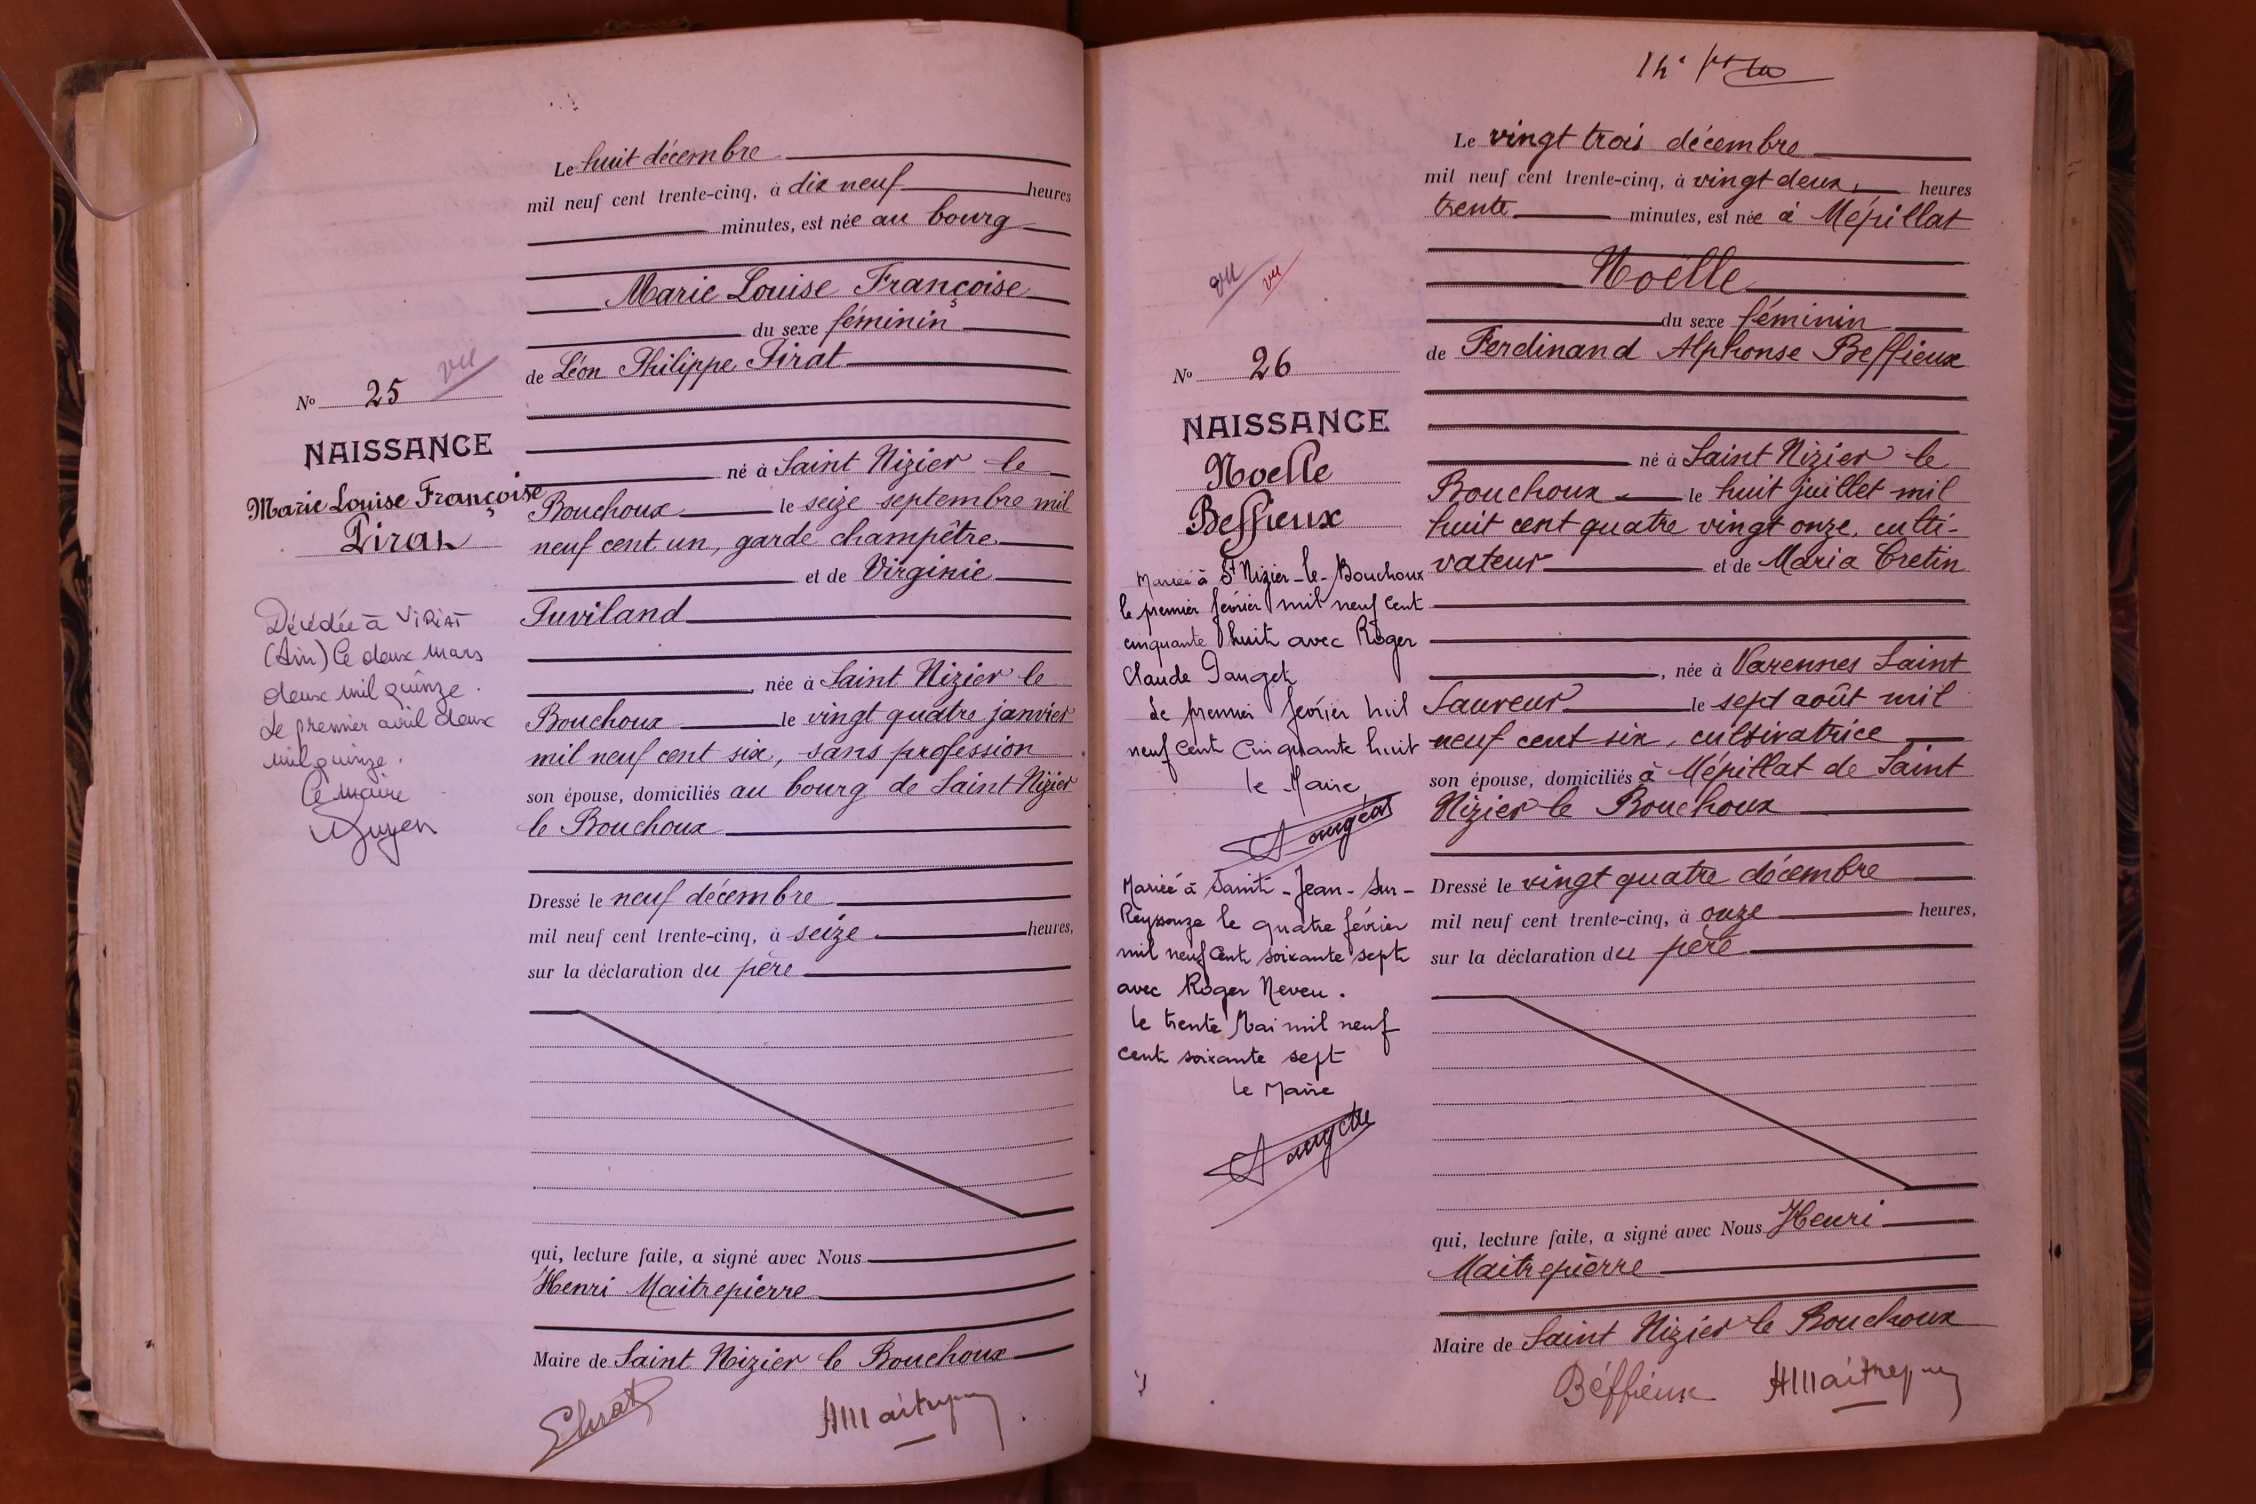 Le huit décembre
mil neuf cent trente-cinq, à dix neuf heures
minutes, est née au bourg
Marie Louise Françoise
du sexe féminin
de Léon Philippe Pirat
né à Saint Nizier le
Bouchoux le seize septembre mil
neuf cent un, garde champêtre
et de Virginie
Puviland
née à Saint Nizier le
Bouchoux le vingt quatre janvier
mil neuf cent six, sans profession
son épouse, domiciliés au bourg de Saint Nizier
le Bouchoux
Dressé le neuf décembre
mil neuf cent trente-cinq, à seize heures,
sur la déclaration du père
qui, lecture faite, a signé avec Nous
Henri Maitrepierre
Maire de Saint Nizier le Bouchoux
vu
No 25
NAISSANCE
Marie Louise Françoise
Pirat
Décédée à VIRIAT
(Ain) le deux mars
deux mil quinze.
Le premier avril deux
mil quinze.
Le maire
vu vu
No 26
NAISSANCE
Noelle
Beffieux
Mariée à St Nizier-le-Bouchoux
le premier février mil neuf cent
cinquante huit avec Roger
Claude Panget
Le premier février mil
neuf cent cinquante huit
le Maire,
Mariée à Saint-Jean-sur-
Reyssouze le quatre février
mil neuf cent soixante sept
avec Roger Neveu.
le trente Mai mil neuf
cent soixante sept
le Maire
Le vingt trois décembre
mil neuf cent trente-cinq, à vingt deux, heures
trente minutes, est née à Mépillat
Noëlle
du sexe féminin
de Ferdinand Alphonse Beffieux
né à Saint Nizier le
Bouchoux le huit juillet mil
huit cent quatre vingt onze, culti-
vateur et de Maria Cretin
, née à Varennes Saint
Sauveur le sept août mil
neuf cent six, cultivatrice
son épouse, domiciliés à Mépillat de Saint
Nizier le Bouchoux
Dressé le vingt quatre décembre
mil neuf cent trente-cinq, à onze heures,
sur la déclaration du père
qui, lecture faite, a signé avec Nous Henri
Maitrepierre
Maire de Saint Nizier le Bouchoux
Béffieux